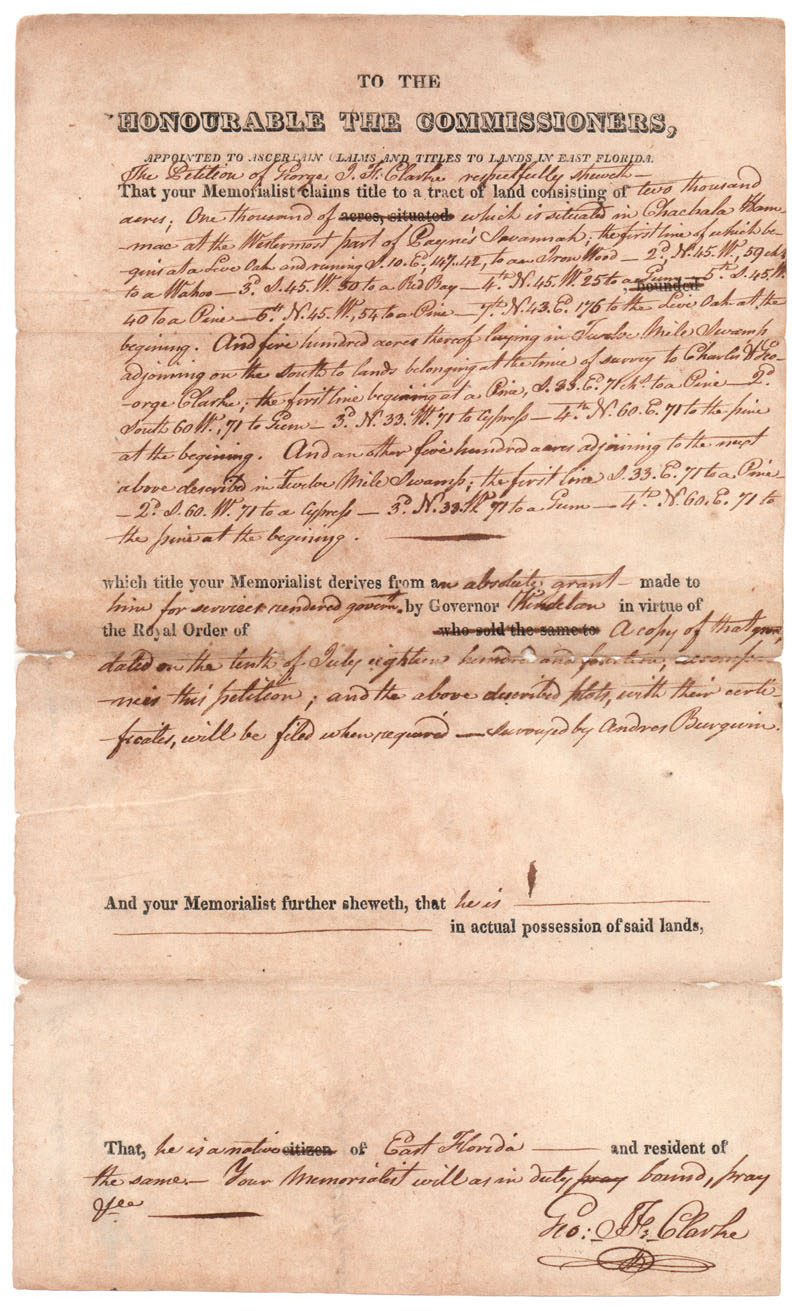 TO THE
HONOURABLE THE COMMISSIONERS,
APPOINTED TO ASCERTAIN CLAIMS AND TITLES TO LANDS IN EAST FLORIDA.
The Petition of George J. F. Clarke respectfully sheweth —
That your Memorialist claims title to a tract of land consisting of two thousand
acres; One thousand of acres, situated which is situated in Chachala Ham-
-mac at the Westermost part of Payne's Savannah; the first line of which be-
gins at a Live Oak and runing S.10.E., 147.42, to an Iron Wood — 2d. N.45.W., 59 chs
to a Wahoo — 3d. S.45.W. 50 to a Red Bay — 4th. N.45.W. 25 to a Gum bounded — 5th. S.45.W.
40 to a Pine — 6th. N.45.W., 54 to a Pine — 7th. N.43.E. 176 to the Live Oak at the
begining. And five hundred acres thereof laying in Twelve Mile Swamp
adjoining on the south to lands belonging at the time of survey to Charles & Ge-
-orge Clarke; the first line begining at a Pine, S.33.E. 71 chs. to a Pine — 2d.
South 60 W., 71 to Gum — 3d. N.33.W. 71 to Cypress — 4th. N.60.E. 71 to the pine
at the begining. And an other five hundred acres adjoining to the next
above described in Twelve Mile Swamp; the first line S.33.E. 71 to a Pine
— 2d. S.60.W. 71 to a Cypress — 3d. N.33.W. 71 to a Gum — 4th. N.60.E. 71 to
the pine at the begining.
which title your Memorialist derives from an absolute grant — made to
him for services rendered governt. by Governor Kindelan in virtue of
the Royal Order of who sold the same to A copy of that
dated on the tenth of July eighteen hundred and fourteen, accomp-
nies this petition; and the above described plots, with their certi-
ficates, will be filed when required — surveyed by Andres Burgevin.
And your Memorialist further sheweth, that he is
in actual possession of said lands,
That, he is a native citizen of East Florida — and resident of
the same — Your Memorialist will as in duty pray bound, pray
&ca
Geo: J. F. Clarke